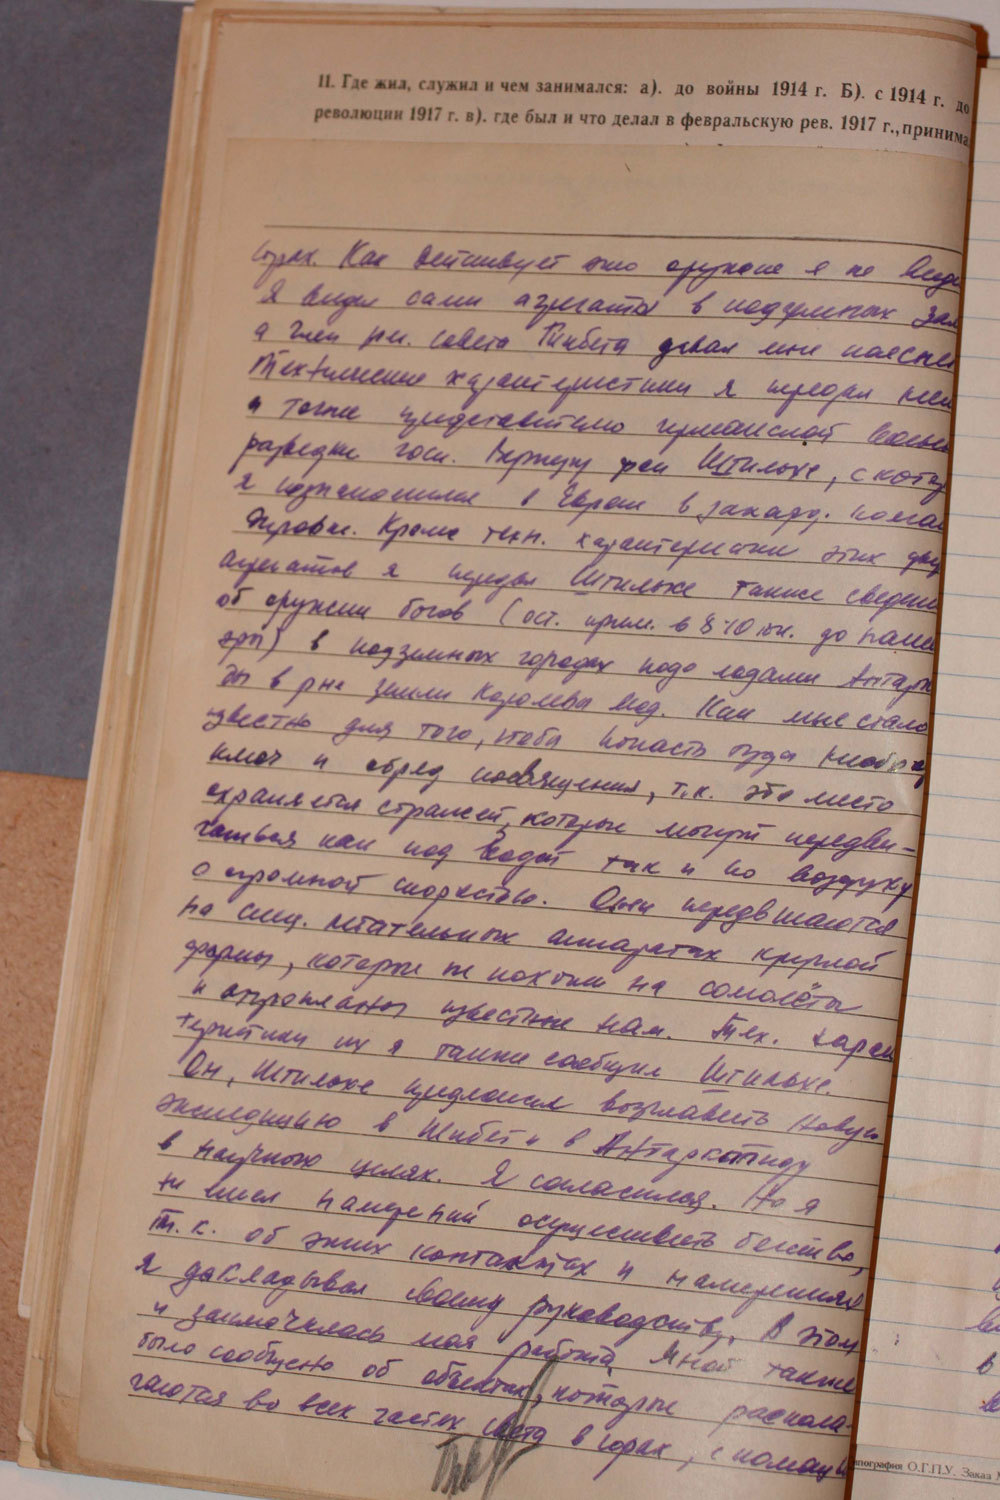 11. Где жил, служил и чем занимался: а). до войны 1914 г. Б). с 1914 г. до
революции 1917 г. в). где был и что делал в февральскую рев. 1917 г., принима
Как действует это оружие я не
Я видел сами агрегаты в подземных зал
а член рег. совета Тибета давал мне поясне
Технические характеристики я передал
а также представителю германской военно
разведки госп. фон Штильхе, с котор
я познакомился в Европе в загард.
Кроме техн. характеристики этих двух
агрегатов я передал Штильхе также сведени
об оружии богов (ост. прим. в 8-10 тн. до наше
эры) в подземных городах подо льдами Антарк
ды в р-не Земли Королевы Мод. Как мне стало
известно для того, чтобы попасть туда необход
ключ и обряд посвящения, т.к. это место
охраняется стражей, которые могут передви-
гаться как под водой так и по воздуху
с огромной скоростью. Они передвигаются
на спец. летательных аппаратах круглой
формы, которые не похожи на самолёты
и аэропланы известные нам. Тех. харак
теристики их я также сообщил Штильхе.
Он, Штильхе предложил возглавить новую
экспедицию в Тибет и в Антарктиду
в научных целях. Я согласился. Но я
не имел намерений осуществить бегство,
т.к. об этих контактах и намерениях
я докладывал своему руководству. В этом
и заключалась моя работа. Мной также
было сообщено об объектах, которые распола-
гаются во всех частях света в горах, с помощь
ипография О.Г.П.У. Заказ